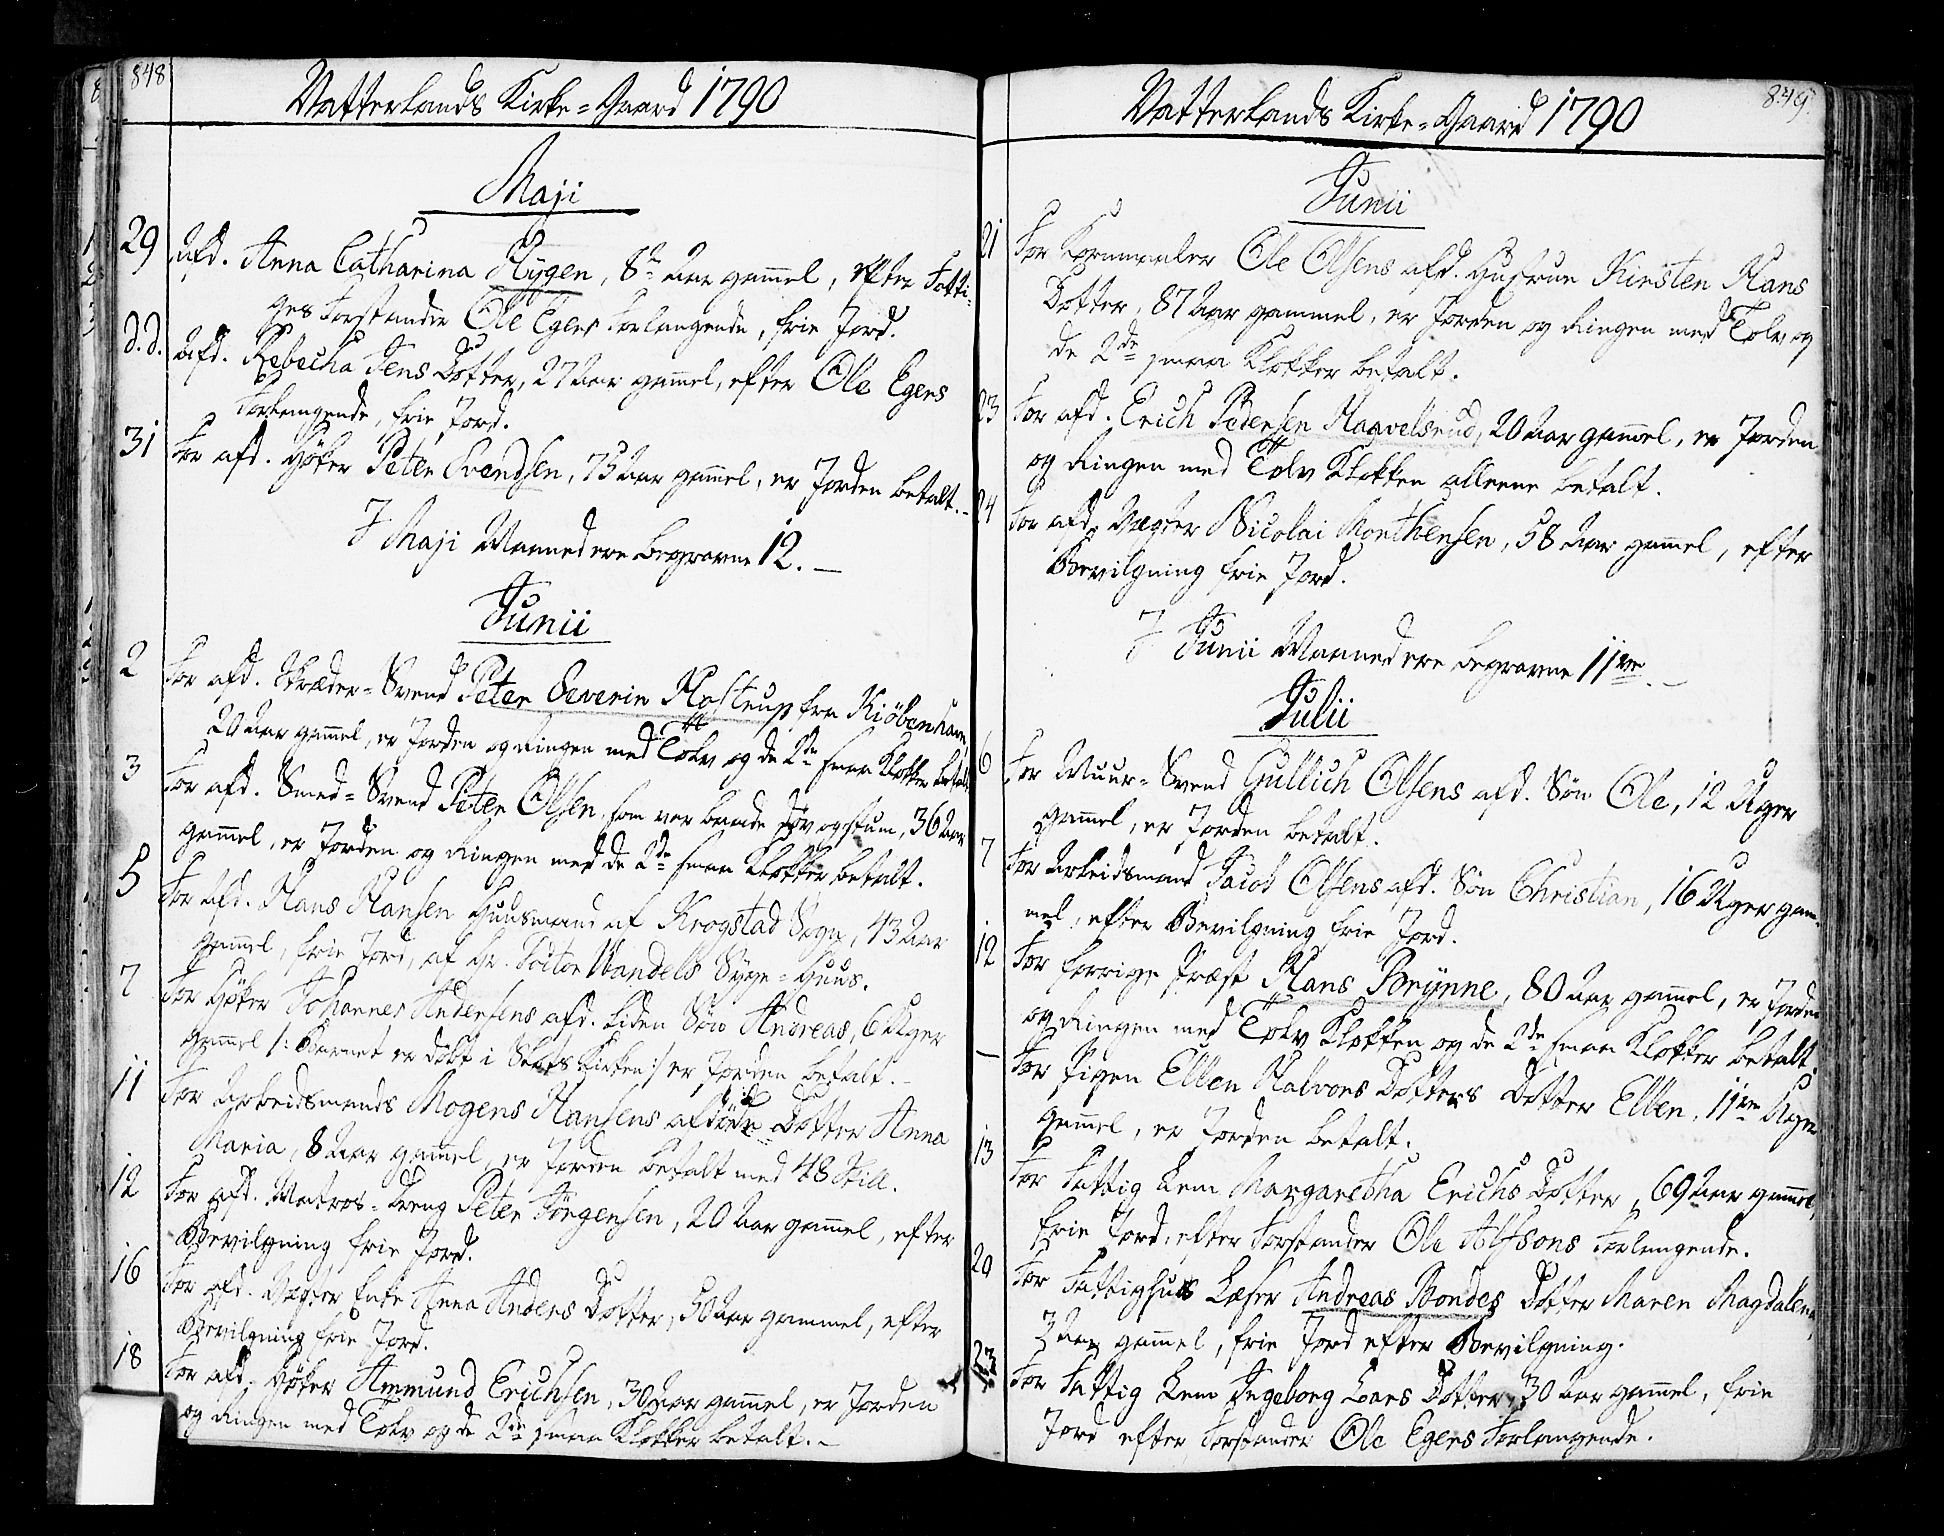 848
Vatterlands Kirke-Gaard 1790
Maji
29 Afd. Anna Catharina Hÿgen, Aar gam̄el, efter Fatti-
ges Forstander Ole Egers Forlangende, frie Jord.
d.d. Afd. Rebecha Jens Dotter, 27 Aar gam̄el, efter Ole Egers
Forlangende, frie Jord.
31 For afd. Høker Peter Svendsen, 75 Aar gam̄el, er Jorden betalt.
I Maji Maaned ere begravne 12.
Junii
2 For afd. Skræder-Svend Peter Severin Hostrup fra Kiøbenhavn,
20 Aar gam̄el, er Jorden og Ringen med Tolv og de 2de smaa Klokker betalt
3 For afd. Smed-Svend Peter Olsen, som var baade døv og stum, 36 Aar
gam̄el, er Jorden og Ringen med de 2de smaa Klokker betalt.
5 For afd. Hans Hansen Huusmand af Krogstad Sogn, 43 Aar
gam̄el, frie Jord, af Hr. Doctor Wandels Syge-Huus.
7 For Høker Johannes Andersens afd. liden Søn Andreas, 6 Uger
gam̄el /: Barnet er døbt i Slots Kirken :/ er Jorden betalt.
11 For Arbeidsmands Mogens Hansens afdøde Dotter Anna
Maria, 8 Aar gam̄el, er Jorden betalt med 48 Skill.
12 For afd. Matros-Dreng Peter Jørgensen, 20 Aar gam̄el, efter
Bevilgning frie Jord.
16 For afd. Vægter Enke Anna Anders Dotter, 50 Aar gammel, efter
Bevilgning frie Jord.
18 For afd. Høker Ammund Erichsen, 30 Aar gam̄el, er Jorden
og Ringen med Tolv og de 2de smaa Klokker betalt.
849.
Vatterlands Kirke-Gaard 1790
Junii
21 For Kornmaaler Ole Olsens afd. Hustrue Kirsten Hans
Dotter, 87 Aar gammel, er Jorden og Ringen med Tolv og
de 2de smaa Klokker betalt.
23 For afd. Erich Pedersen Haavelsrud, 20 Aar gam̄el, er Jorden
og Ringen med Tolv Klokken alleene betalt.
24 For afd. Vægter Nicolai Morthensen, 58 Aar gam̄el, efter
Bevilgning frie Jord.
I Junii Maaned ere begravne 11ve.
Julii
6 For Muur-Svend Gullich Olsens afd. Søn Ole, 12 Uger
gam̄el, er Jorden betalt.
7 For Arbeidsmand Jacob Olsens afd. Søn Christian, 16 Uger gam-
mel, efter Bevilgning frie Jord.
12 For forrige Præst Hans Brÿnne, 80 Aar gam̄el, er Jorden
og Ringen med Tolv Klokken og de 2de smaa Klokker betalt.
— For Pigen Ellen Halvors Dotters Dotter Ellen, 11ve Uger
gam̄el, er Jorden betalt.
13 For Fattig Lem Margaretha Erichs Dotter, 69 Aar gam̄el,
frie Jord, efter Forstander Ole Alfsons Forlangende.
20 For Fattighuus Læser Andreas Bondes Dotter Maren Magdalena,
3 Aar gam̄el, frie Jord efter Bevilgning.
23 For Fattig Lem Ingeborg Lars Dotter, 30 Aar gam̄el, frie
Jord efter Forstander Ole Egers Forlangende.